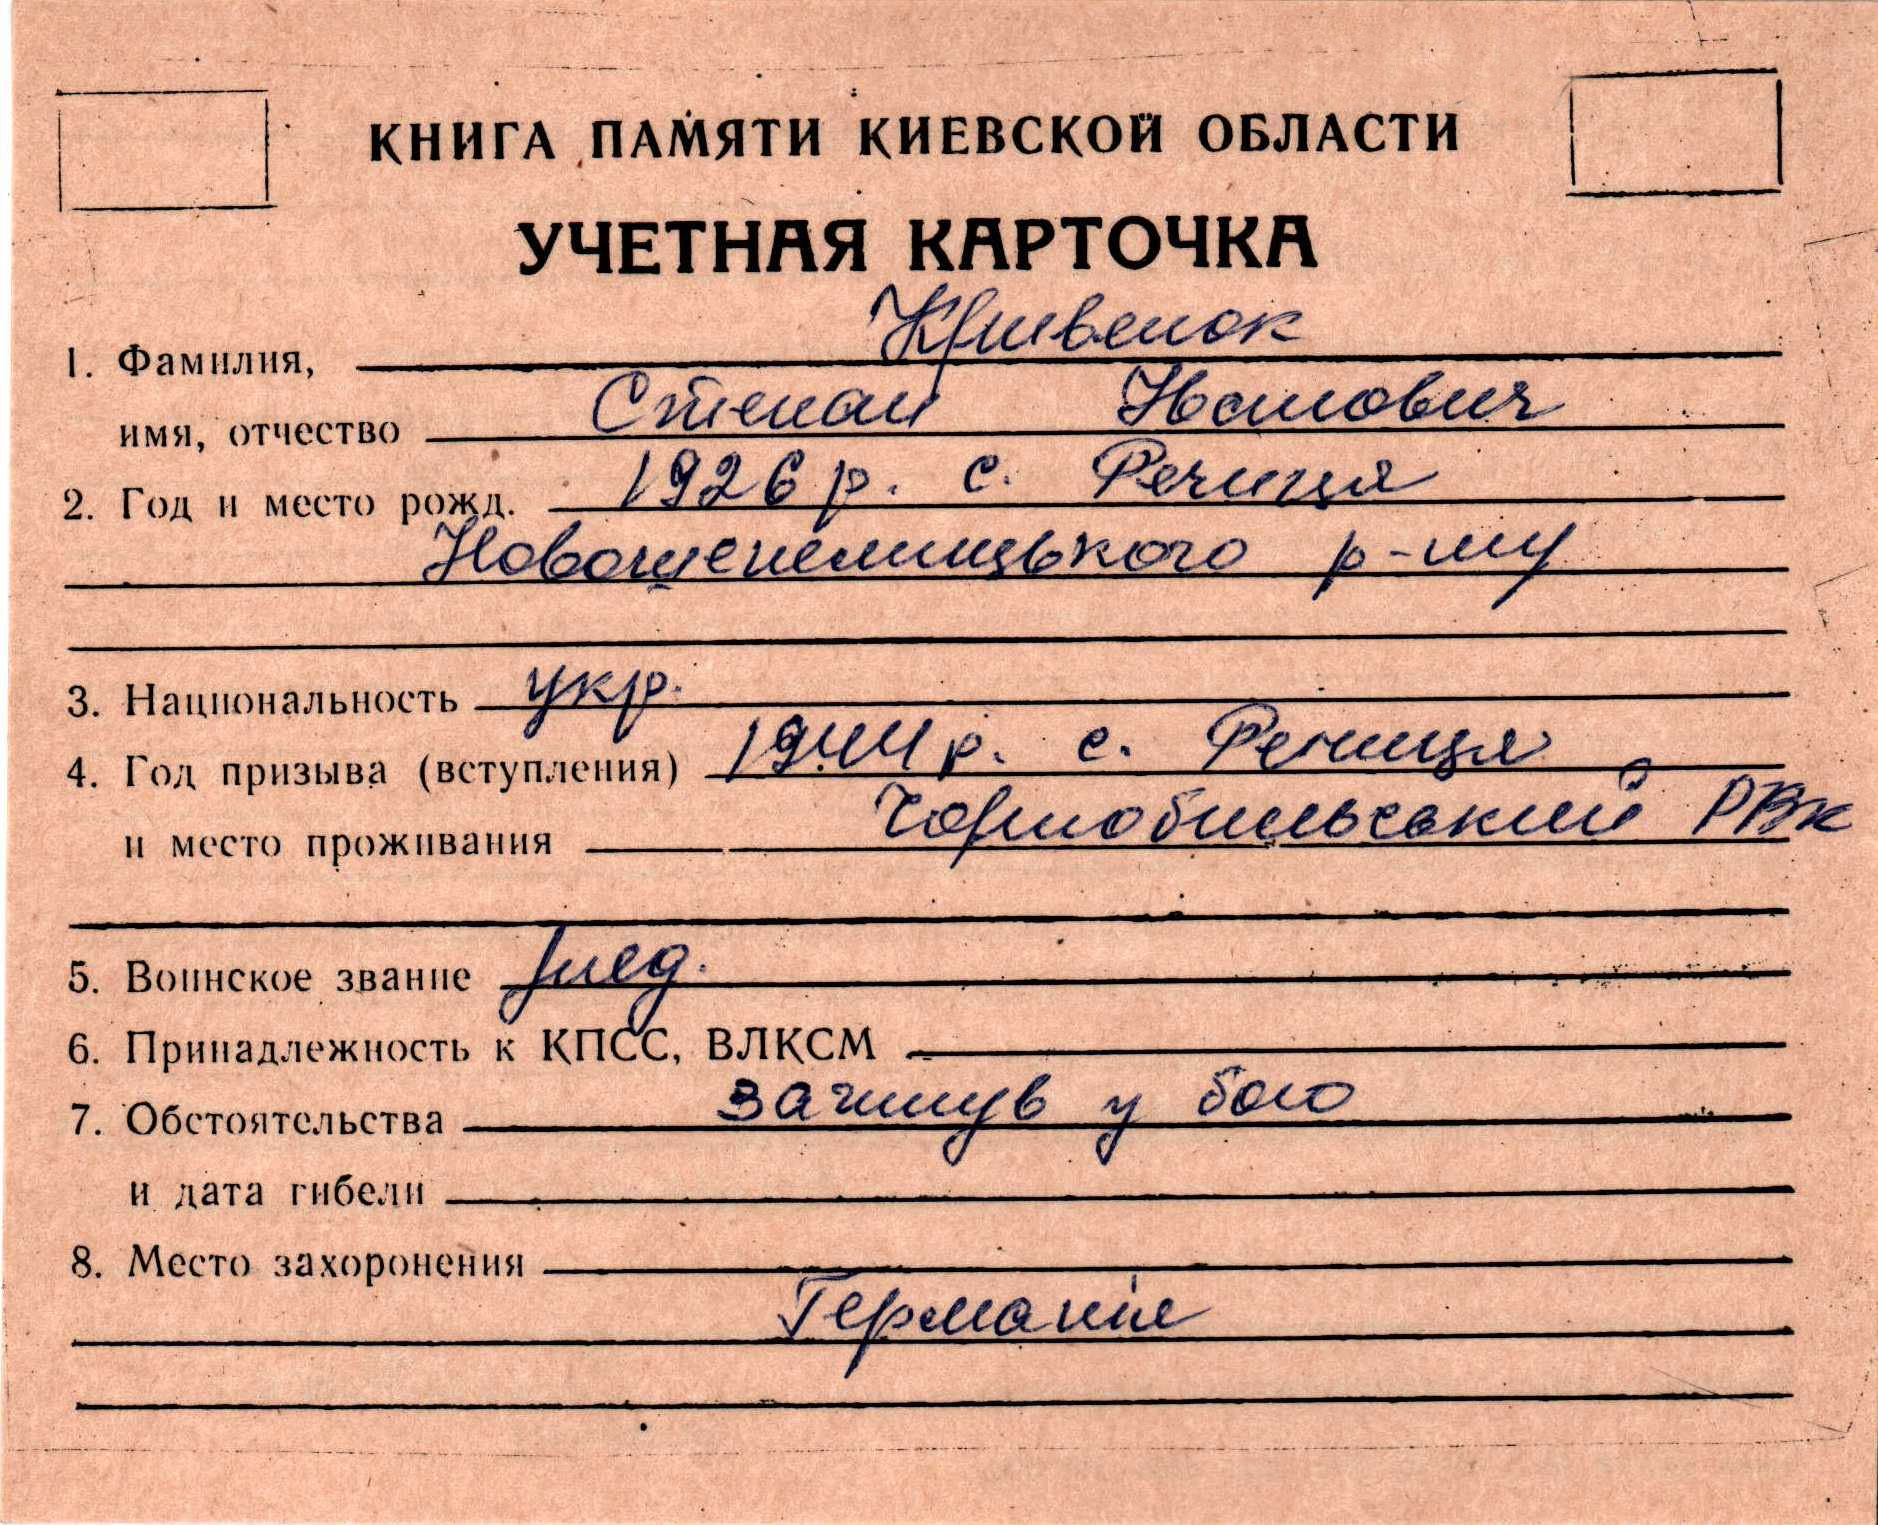 КНИГА ПАМЯТИ КИЕВСКОЙ ОБЛАСТИ
УЧЕТНАЯ КАРТОЧКА
1. Фамилия, Кривенок
имя, отчество Степан Іванович
2. Год и место рожд. 1926 р. с. Речиця
Новошепелицького р-ну
3. Национальность укр.
4. Год призыва (вступления) 1944 р. с. Речиця
и место проживания Чорнобильський РВК
5. Воинское звание ряд.
6. Принадлежность к КПСС, ВЛКСМ
7. Обстоятельства загинув у бою
и дата гибели
8. Место захоронения
Германія